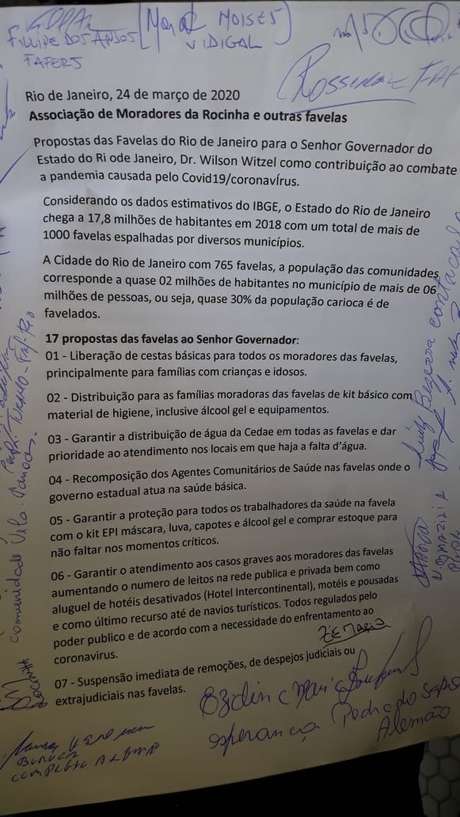 FILLIPE DOS ANJOS
FAFERJ
MOISES
VIDIGAL
ROSSINA
Rio de Janeiro, 24 de março de 2020
Associação de Moradores da Rocinha e outras favelas
Propostas das Favelas do Rio de Janeiro para o Senhor Governador do
Estado do Ri ode Janeiro, Dr. Wilson Witzel como contribuição ao combate
a pandemia causada pelo Covid19/coronavírus.
Considerando os dados estimativos do IBGE, o Estado do Rio de Janeiro
chega a 17,8 milhões de habitantes em 2018 com um total de mais de
1000 favelas espalhadas por diversos municípios.
A Cidade do Rio de Janeiro com 765 favelas, a população das comunidades
corresponde a quase 02 milhões de habitantes no município de mais de 06
milhões de pessoas, ou seja, quase 30% da população carioca é de
favelados.
17 propostas das favelas ao Senhor Governador:
01 - Liberação de cestas básicas para todos os moradores das favelas,
principalmente para famílias com crianças e idosos.
02 - Distribuição para as famílias moradoras das favelas de kit básico com
material de higiene, inclusive álcool gel e equipamentos.
03 - Garantir a distribuição de água da Cedae em todas as favelas e dar
prioridade ao atendimento nos locais em que haja a falta d'água.
04 - Recomposição dos Agentes Comunitários de Saúde nas favelas onde o
governo estadual atua na saúde básica.
05 - Garantir a proteção para todos os trabalhadores da saúde na favela
com o kit EPI máscara, luva, capotes e álcool gel e comprar estoque para
não faltar nos momentos críticos.
06 - Garantir o atendimento aos casos graves aos moradores das favelas
aumentando o numero de leitos na rede publica e privada bem como
aluguel de hotéis desativados (Hotel Intercontinental), motéis e pousadas
e como último recurso até de navios turísticos. Todos regulados pelo
poder publico e de acordo com a necessidade do enfrentamento ao
coronavirus.
07 - Suspensão imediata de remoções, de despejos judiciais ou
extrajudiciais nas favelas.
ZÉ MARIO
esperança
Alemão
comunidade Vila